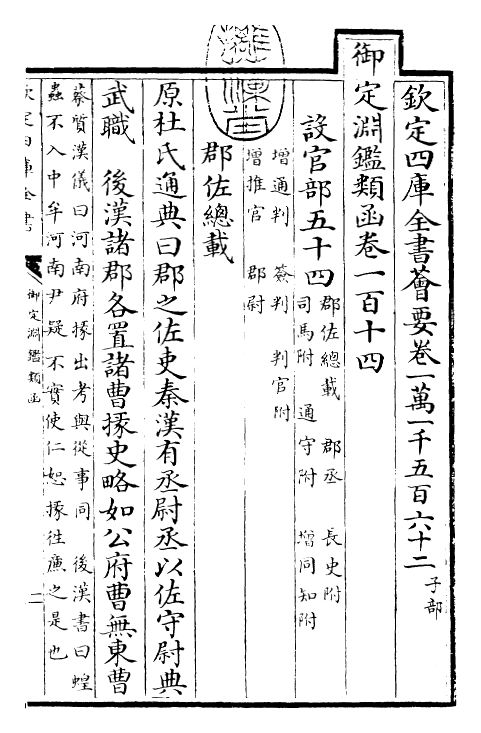 欽定四庫全書薈要卷一萬一千五百六十二 子部
御定淵鑑類函卷一百十四
設官部五十四 郡佐總載 郡丞 長史附
司馬附 通守附 增同知附
增通判 簽判 判官附
增推官 郡尉
郡佐總載
原杜氏通典曰郡之佐吏秦漢有丞尉丞以佐守尉典
武職 後漢諸郡各置諸曹掾史略如公府曹無東曹
蔡質漢儀曰河南府掾出考與從事同 後漢書曰蝗
蟲不入中牟河南尹疑不實使仁恕掾往廉之是也
欽定四庫全書
御定淵鑑類函